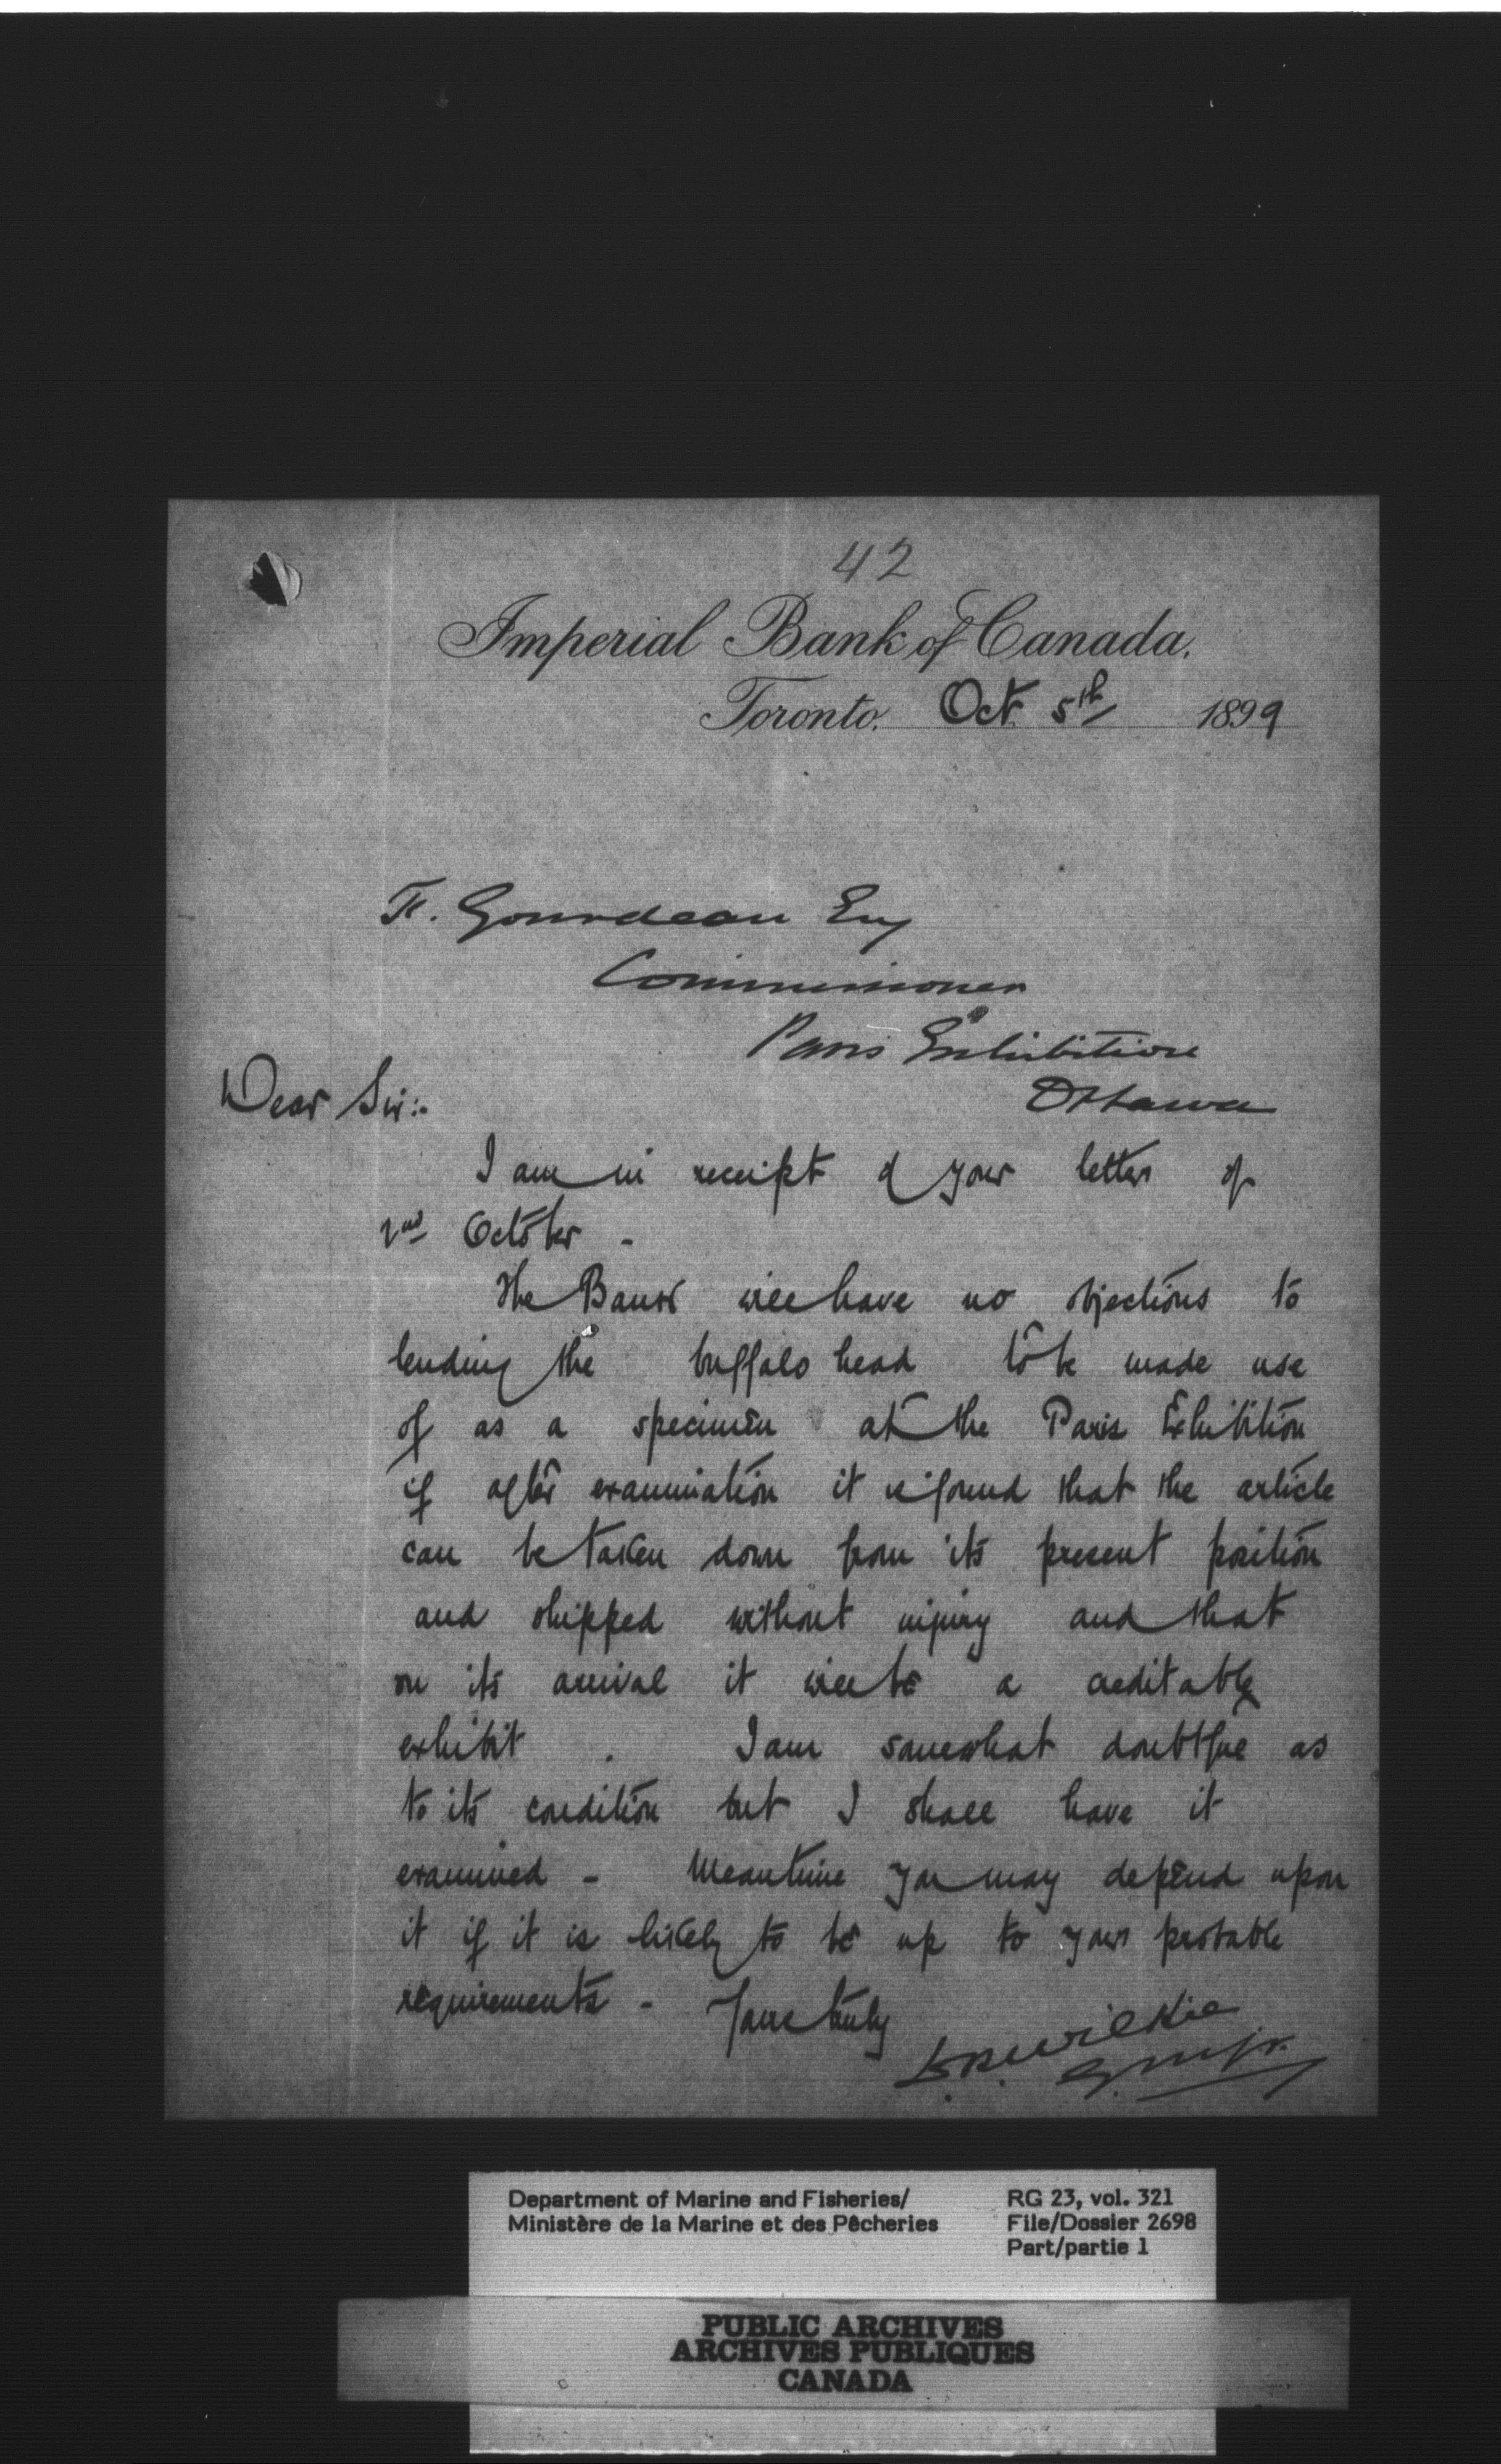 42
Imperial Bank of Canada.
Toronto. Oct. 5th 1899
F. Gourdeau Esq
Commissioner
Paris Exhibition
Ottawa
Dear Sir:-
I am in receipt of your letter of
2nd October -
The Bank will have no objections to
lending the buffalo head to be made use
of as a specimen at the Paris Exhibition
if after examination it is found that the article
can be taken down from its present position
and shipped without injury and that
on its arrival it will be a creditable
exhibit . I am somewhat doubtful as
to its condition but I shall have it
examined - Meantime you may depend upon
it if it is likely to be up to your probable
requirements - Yours truly
D.R. Wilkie
G. Mgr.
Department of Marine and Fisheries/ RG 23, vol. 321
Ministère de la Marine et des Pêcheries File/Dossier 2698
Part/partie 1
PUBLIC ARCHIVES
ARCHIVES PUBLIQUES
CANADA